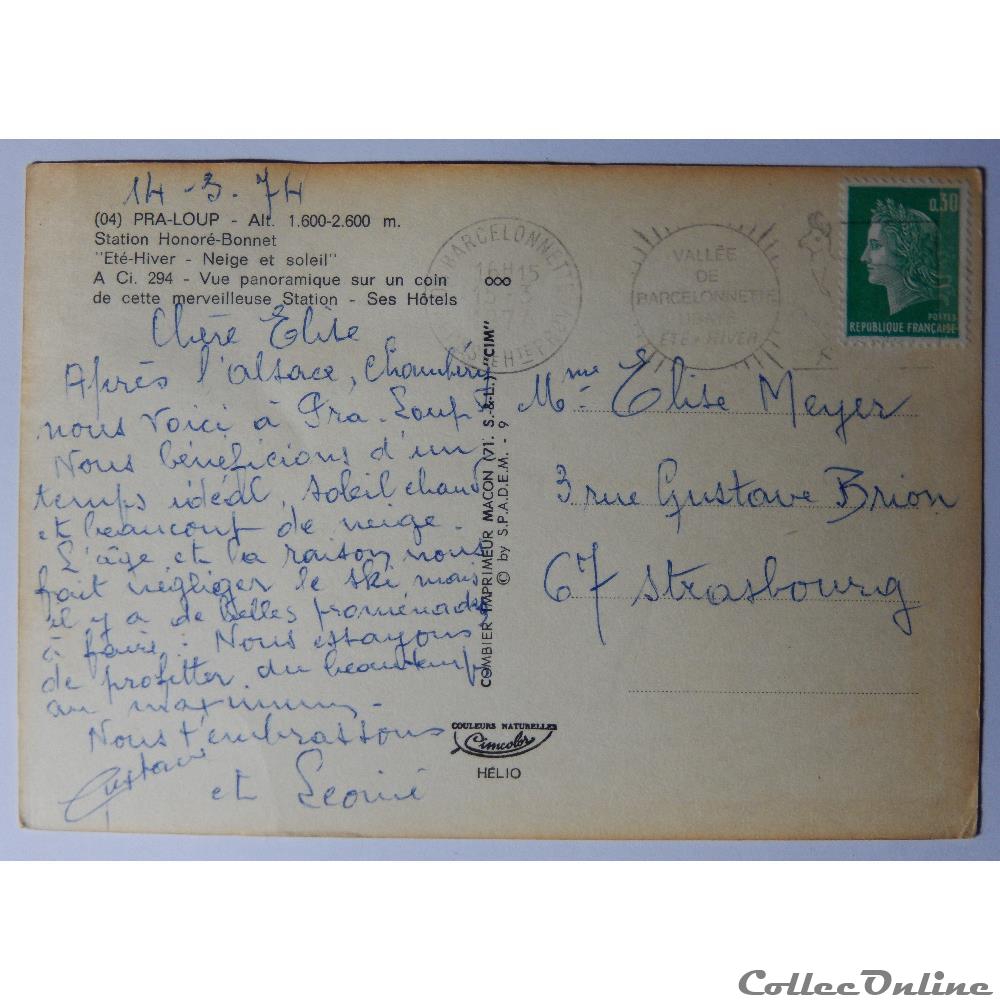 14-3.74
(04) PRA-LOUP - Alt. 1.600-2.600 m.
Station Honoré-Bonnet
"Eté-Hiver - Neige et soleil"
A Ci. 294 - Vue panoramique sur un coin
de cette merveilleuse Station - Ses Hôtels
Chère Elise
Après l'alsace, Chambéry
nous voici à Pra-Loup.
Nous bénéficions d'un
temps idéal, soleil chaud
et beaucoup de neige.
L'âge et la raison nous
fait négliger le ski mais
il y a de belles promenades
à faire. Nous essayons
de profitter du beau temps
au maximum.
Nous t'embrassons
Gustave
et Leonie
BARCELONNETTE
16H15
15-3
VALLÉE
DE
BARCELONNETTE
UBAYE
ETE-HIVER
0,30
POSTES
REPUBLIQUE FRANÇAISE
COMBIER IMPRIMEUR MACON (71. S.-&-L.) "CIM"
© by S.P.A.D.E.M. - 9
Mme Elise Meyer
3 rue Gustave Brion
67 Strasbourg
COULEURS NATURELLES
Cimcolor
HÉLIO
CollecOnline